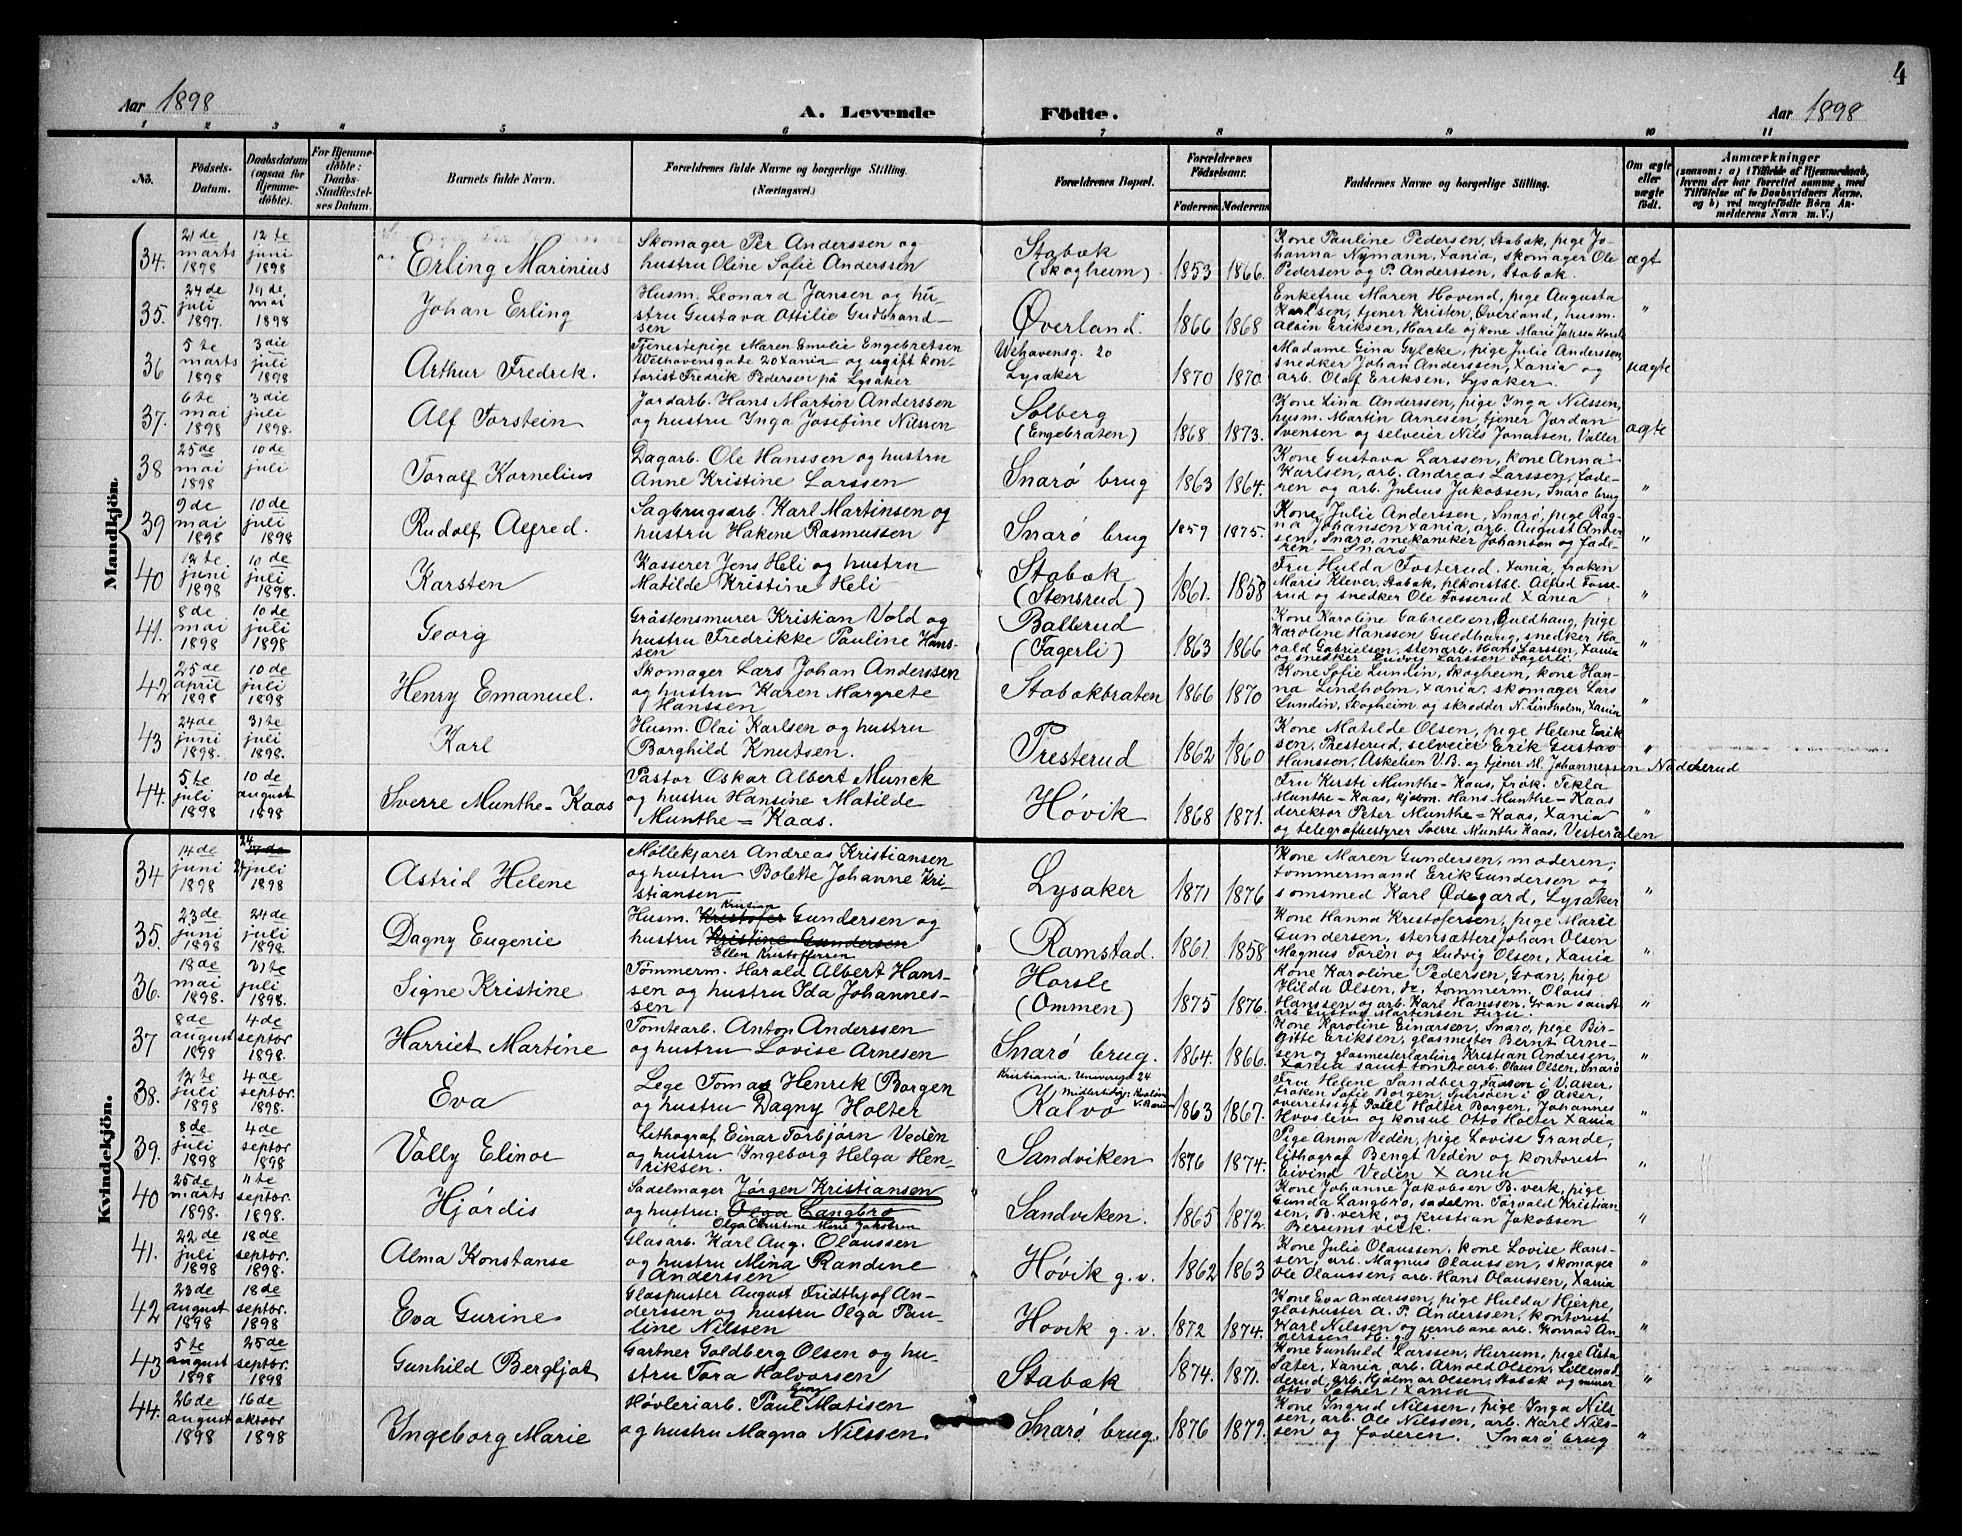 4
Aar 1898
A. Levende
Födte.
Aar 1898
1 2 3 4 5 6 7 8 9 10 11
No.
Födsels-
Datum.
Daabsdatum
(ogsaa for
Hjemme-
döbte).
For Hjemme-
döbte:
Daabs-
Stadfæstel-
ses Datum.
Barnets fulde Navn.
Forældrenes fulde Navne og borgerlige Stilling.
(Næringsvei.)
Forældrenes Bopæl.
Forældrenes
Födselsaar.
Faderens Moderens
Faddernes Navne og borgerlige Stilling.
Om ægte
eller
uægte
födt.
Anmærkninger
(saasom: a) i Tilfælde af Hjemmedaab,
hvem der har forrettet samme, med
Tilföielse af to Daabsvidners Navne,
og b) ved uægtefödte Börn An-
melderens Navn m. V.)
Mandkjön.
34.
21 de
marts
1898
12 te
juni
1898
Erling Marinius
Skomager Per Anderssen og
hustru Oline Sofie Anderssen
Stabæk
(Skogheim)
1853 1866.
Kone Pauline Pedersen, Stabæk, pige Jo-
hanna Nymann, Xania, skomager Ole
Pedersen og P. Anderssen, Stabæk.
ægt
35.
24 de
juli
1897.
19 de
mai
1898
Johan Erling
Husm. Leonard Jansen og hu-
stru Gustava Ottilie Gudbrand-
sen
Øverland.
1866 1868
Enkefrue Maren Hovind, pige Augusta
Karlsen, tjener Kristen, Øverland, husm.
Albin Eriksen, Harsle og kone Marie Jansen Horsle
"
36
5 te
marts
1898
3 die
juli
1898
Arthur Fredrik.
Tjenestepige Maren Emelie Engebretsen
Welhavensgade 20 Xania og ugift kon-
torist Fredrik Pedersen på Lysaker
Wehavensg. 20
Lysaker
1870 1870
Madame Gina Gylcke, pige Julie Anderssen,
snedker Johan Anderssen, Xania og
arb. Olaf Eriksen, Lysaker.
uægte
37.
6 te
mai
1898
3 die
juli
1898.
Alf Torstein
Jordarb. Hans Martin Anderssen
og hustru Inga Josefine Nilssen
Solberg
(Engebraten)
1868 1873.
Kone Lina Anderssen, pige Inga Nilssen,
husm. Martin Arnesen, tjener Jordan
Svensen og selveier Nils Jonassen, Valler
ægte
38
25 de
mai
1898
10 de
juli
Toralf Kornelius
Dagarb. Ole Hanssen og hustru
Anne Kristine Larssen
Snarø brug
1863 1864.
Kone Gustava Larssen, kone Anna
Karlsen, arb. Andreas Larssen, fade-
ren og arb. Julius Jakobsen, Snarø brug
"
39
9 de
mai
1898
10 de
juli
1898
Rudolf Alfred.
Sagbrugsarb. Karl Martinsen og
hustru Hakene Rasmussen
Snarø brug
1859 1875.
Kone Julie Anderssen, Snarø, pige Rag-
na Johansen Xania, arb. August Ander-
sen, Snarø, mekaniker Johanson og fade-
ren – Snarø
"
40
12 te
juni
1898
10 de
juli
1898.
Karsten
Kasserer Jens Heli og hustru
Matilde Kristine Heli
Stabæk
(Stensrud)
1861. 1858
Fru Hulda Fosterud, Xania, frøken
Maris Klever, Stabæk, plkonstbl. Alfred Fosse-
rud og snedker Ole Fosserud Xania
"
41.
8 de
mai
1898
10 de
juli
1898
Georg
Gråstensmurer Kristian Vold og
hustru Fredrikke Pauline Hans-
sen
Ballerud
(Fagerli)
1863 1866
Kone Karoline Gabrielsen, Guldhaug, pige
Karoline Hanssen Guldhaug, snedker Ha-
rald Gabrielsen, stenarb. Hans Larssen, Xania
og snedker Ludvig Larssen Fagerli.
"
42
25 de
april
1898
10 de
juli
1898
Henry Emanuel.
Skomager Lars Johan Anderssen
og hustru Karen Margrete
Hanssen
Stabækbraten
1866 1870
Kone Sofie Lundin, Skogheim, kone Han-
na Lindholm, Xania, skomager Lars
Lundin, Skogheim og skrædder N. Lindholm, Xania
"
43
24 de
juni
1898.
31 te
juli
1898.
Karl
Husm. Olai Karlsen og hustru
Borghild Knutsen.
Presterud
1862 1860
Kone Matilde Olsen, pige Helene Erik-
sen, Presterud, selveier Erik Gustav
Hansson, Askelien V.B. og tjener M. Johannessen Nadderud
"
44.
5 te
juli
1898
10 de
august
1898
Sverre Munthe-Kaas
Pastor Oskar Albert Munck
og hustru Hansine Matilde
Munthe=Kaas.
Høvik
1868 1871.
Fru Kirsti Munthe-Kaas, frøk. Tekla
Munthe-Kaas, kjøbm. Hans Munthe-Kaas
direktør Peter Munthe=Kaas, Xania
og telegrafbestyrer Sverre Munthe Kaas, Vesterålen
"
Kvindekjön.
34
14 de
juni
1898
24
17 de
juli
1898
Astrid Helene
Møllekjører Andreas Kristiansen
og hustru Bolette Johanne Kri-
stiansen
Lysaker
1871 1876
Kone Maren Gundersen, moderen,
tømmermand Erik Gundersen og
somsmed Karl Ødegard, Lysaker
"
35.
23 de
juni
1898
24 de
juli
1898.
Dagny Eugenie
Kristian
Husm. Kristofer Gundersen og
hustru Kristine Gundersen
Ellen Kristoffersen
Ramstad.
1861. 1858
Kone Hanna Kristofersen, pige Marie
Gundersen, stensætter Johan Olsen
Magnus Toren og Ludvig Olsen, Xania
"
36.
18 de
mai
1898.
31 te
juli
1898.
Signe Kristine
Tømmerm. Harald Albert Hans-
sen og hustru Ida Johannes-
sen
Horsle
(Ommen)
1875 1876.
Kone Karoline Pedersen, Gran, pige
Hilda Olsen, do, tømmerm. Olaus
Hanssen og arb. Karl Hanssen, Gran samt
arb Gustav Martinsen Furu.
"
37
8 de
august
1898
4 de
septbr
1898.
Harriet Martine
Tomtearb. Anton Anderssen
og hustru Lovise Arnesen
Snarø brug.
1864. 1866.
Kone Karoline Einarsen, Snarø, pige Bir-
gitte Eriksen, glasmester Bernt Arne-
sen og glasmesterlærling Kristian Andresen,
Xania samt tomtearb. Olaus Olsen, Snarø
"
38.
12 te
juli
1898
4 de
septbr.
1898.
Eva
Læge Tomas Henrik Borgen
og hustru Dagny Holter
Kristiania, Universg. 24
Kalvø
1863 1867.
Fru Helene Sandberg, Faasen i V. Aker,
frøken Sofie Borgen, Spirsøen i Ø Aker,
overretssgf Paul Holter Borgen, Johannes
og konsul Otto Holter Xania
"
39.
8 de
juli
1898
4 de
septbr
1898
Vally Elinor
Lithograf Einar Torbjørn Vedèn
og hustru Ingeborg Helga Hen-
riksen.
Sandviken
1876 1874.
Pige Anna Vedèn, pige Lovise Grande,
lithograf Bengt Vedèn og kontorist
Eivind Vedèn Xania
"
40
25 de
marts
1898.
11 te
septbr.
1898.
Hjørdis
Sadelmager Jørgen Kristiansen
og hustru: Olga Langbrø
Olga Christine Marie Jakobsen
Sandviken.
1865 1872.
Kone Johanne Jakobsen B. verk, pige
Gunda Langbrø, sadelm. Torvald Kristian-
sen, B. verk, og Kristian Jakobsen
Bærums verk.
"
41.
22 de
juli
1898
18 de
septbr.
1898.
Alma Konstanse
Glasarb. Karl Aug. Olaussen
og hustru Mina Randine
Anderssen
Høvik g. v.
1862 1863
Kone Julie Olaussen, kone Lovise Hans-
sen, arb. Magnus Olaussen, skomager
Ole Olaussen, arb. Hans Olaussen, Xania
"
42
23 de
august
1898
18 de
septbr.
1898
Eva Gurine
Glaspuster August Fridthjof An-
derssen og hustru Olga Pau-
line Nilssen
Høvik g. v.
1872 1874.
Kone Eva Anderssen, pige Hulda Hjerpe,
glaspuster A. P. Anderssen, kontorist
Karl Nilssen og jernbane arb. Konrad An-
derssen H. g. v.
"
43
5 te
august
1898
25 de
septbr.
1898
Gunhild Bergljot
Gartner Goldberg Olsen og hu-
stru Tora Halvorsen
Stabæk
1874. 1871.
Kone Gunhild Larssen, Hurum, pige Asta
Sæter, Xania, arb. Arnold Olsen, Lillenad-
derud, arb. Hjalmar Olsen, Stabæk og murer
Otto Sæther, Xania
"
44.
26 de
august
1898
16 de
oktbor
1898
Ingeborg Marie
Høvleriarb. Paul Matisen
og hustru Magna Nilssen.
Snarø brug.
1876 1879.
Kone Ingrid Nilssen, pige Inga Nils-
sen, arb. Ole Nilssen, arb. Karl Nils-
sen og faderen. Snarø brug
"